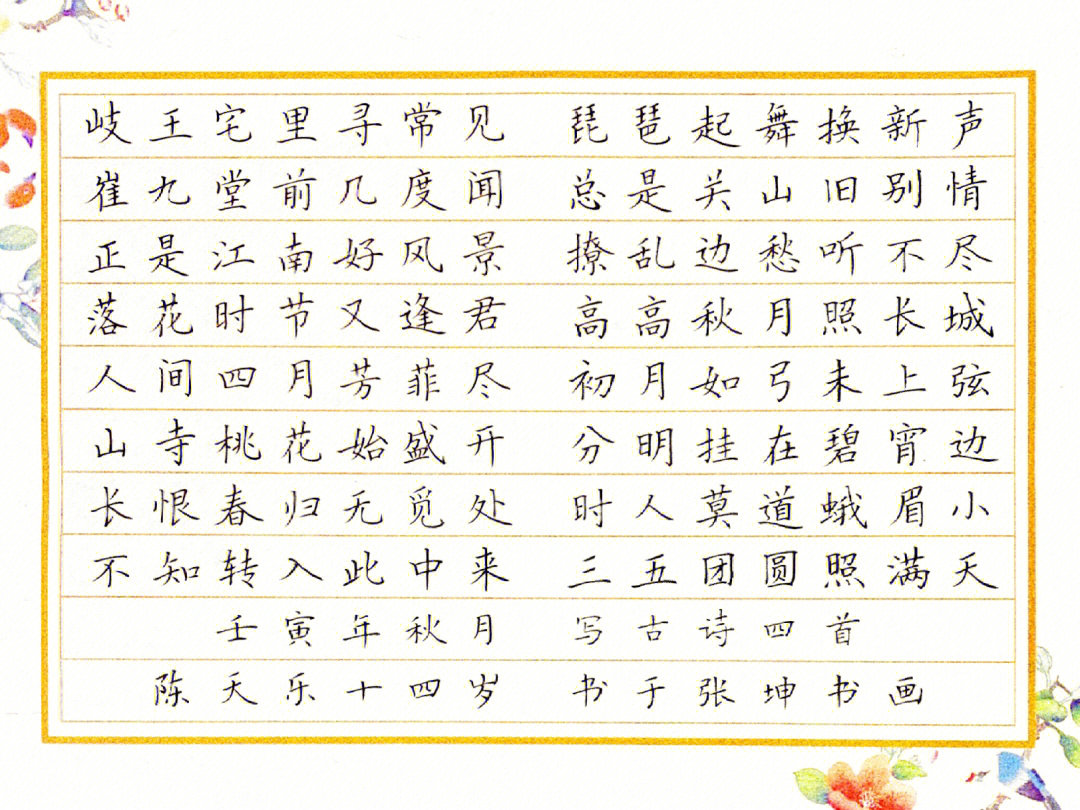 岐王宅里寻常见 琵琶起舞换新声
崔九堂前几度闻 总是关山旧别情
正是江南好风景 撩乱边愁听不尽
落花时节又逢君 高高秋月照长城
人间四月芳菲尽 初月如弓未上弦
山寺桃花始盛开 分明挂在碧霄边
长恨春归无觅处 时人莫道蛾眉小
不知转入此中来 三五团圆照满天
壬寅年秋月 写古诗四首
陈天乐十四岁 书于张坤书画